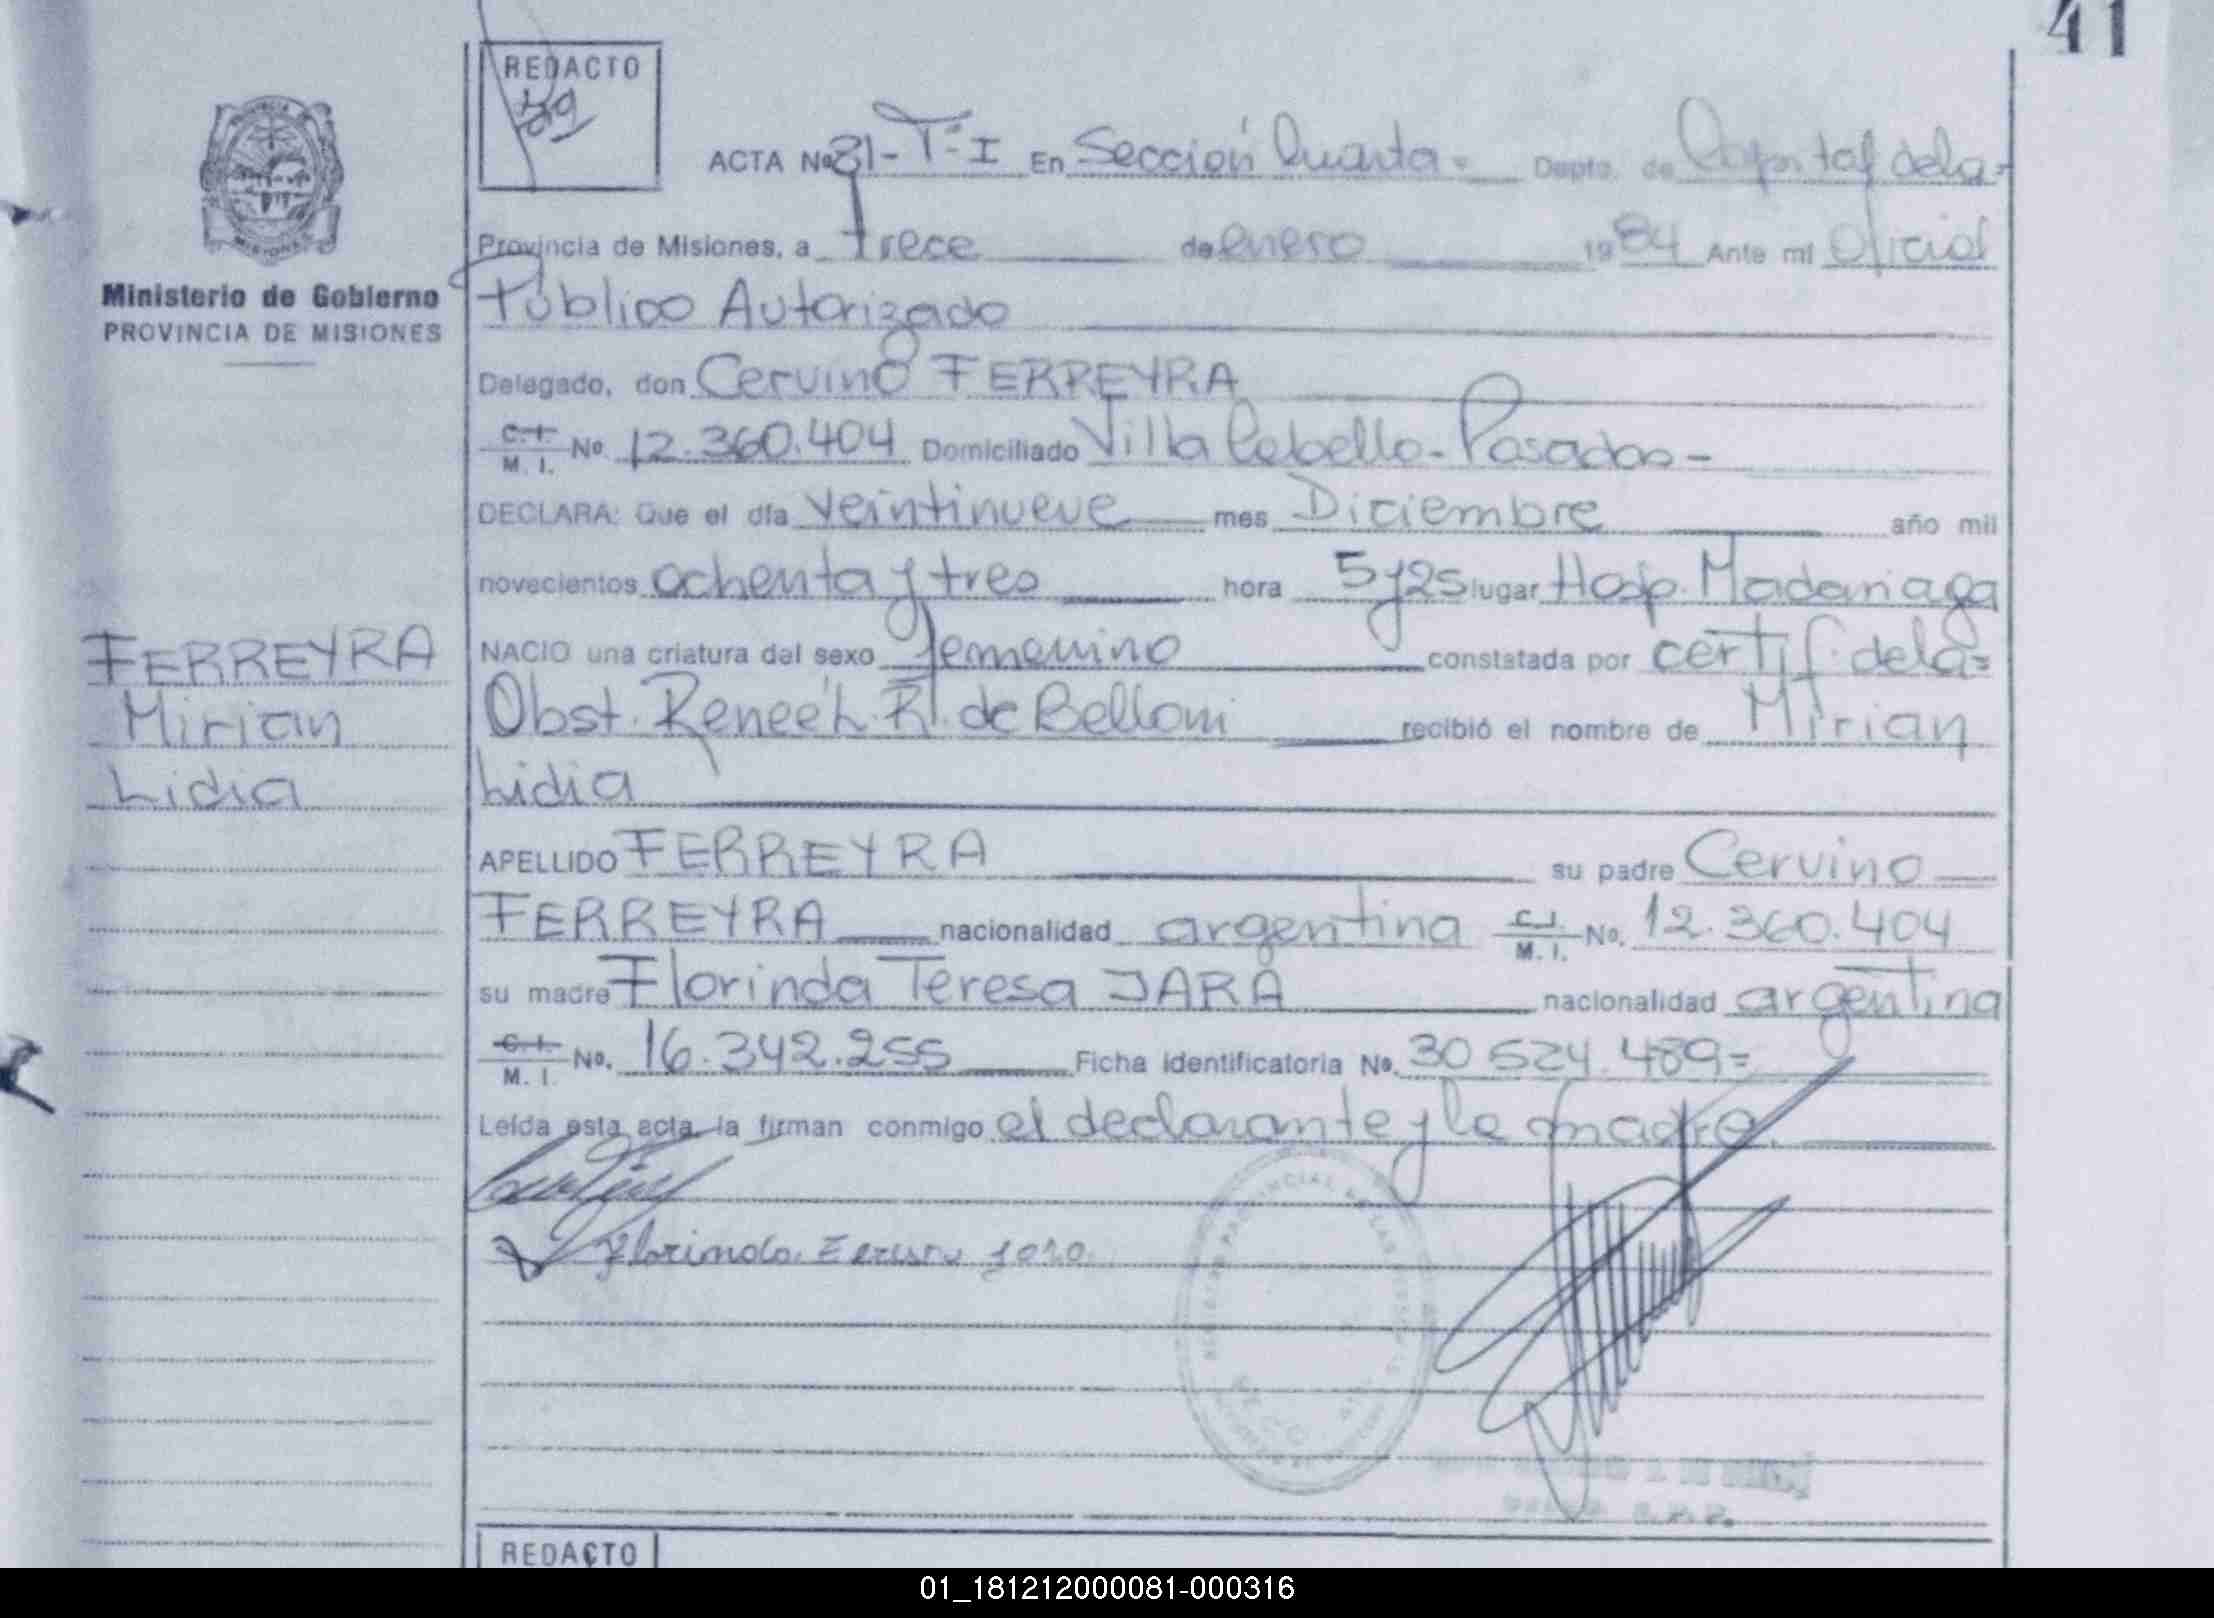 41
REDACTO
ACTA No 81-Tº I En Sección Cuarta. Depto. de Capital de la
Provincia de Misiones, a trece de enero 1984 Ante mi Oficial
Ministerio de Gobierno
PROVINCIA DE MISIONES
Público Autorizado
Delegado, don Cervino FERREYRA
C.I. M. I. No. 12.360.404 Domiciliado Villa Cabello - Posadas -
DECLARA: Que el día veintinueve mes Diciembre año mil
novecientos ochenta y tres hora 5y25 lugar Hosp. Madariaga
FERREYRA
Mirian
Lidia
NACIO una criatura del sexo femenino constatada por certif. de la=
Obst. Reneé L. R. de Belloni recibió el nombre de Mirian
Lidia
APELLIDO FERREYRA su padre Cervino
FERREYRA nacionalidad argentina C.I. M. I. No. 12.360.404
su madre Florinda Teresa JARA nacionalidad argentina
C.I. M. I. No. 16.342.255 Ficha identificatoria No. 30 524.489=
Leída esta acta la firman conmigo el declarante y la madre.
Florinda Teresa Jara
REDACTO
01_181212000081-000316